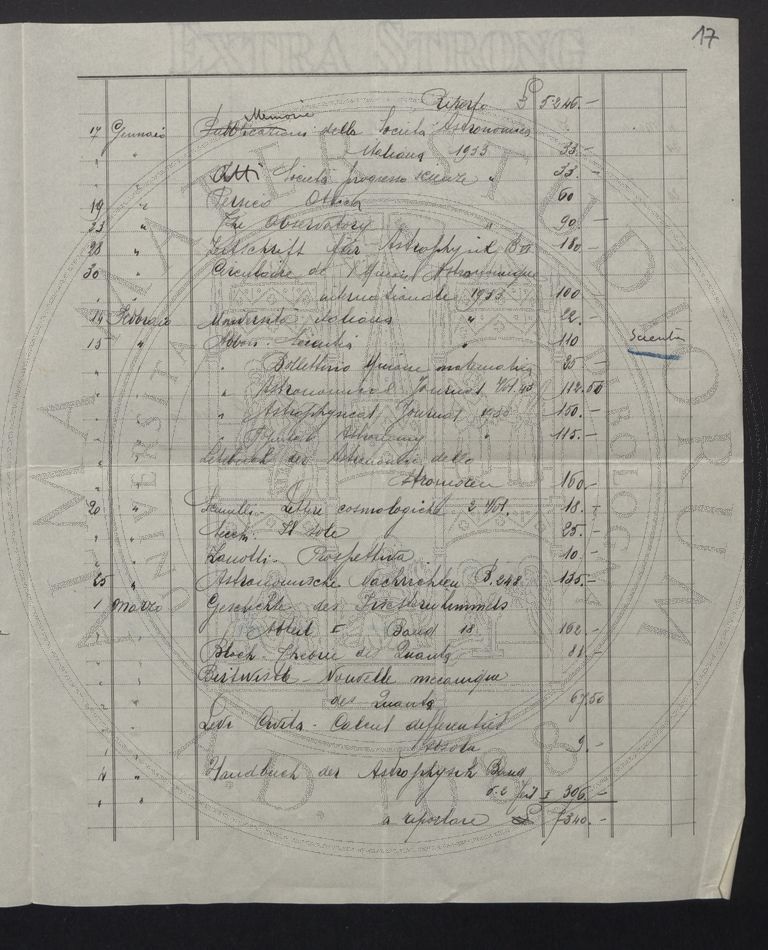 EXTRA STRONG
17
Riporto £ 5.246.-
Memorie
17 Gennaio Pubblicazioni della Società Astronomica
Italiana 1933 33.-
" " Atti Società progresso scienze " 33.-
19 " Persico Ottica 60
23 " The Observatory " 90.-
28 " Zeitschrift für Astrophysik B 180.-
30 " Circulaire de l'Union Astronomique
internationale 1933 100
14 Febbraio Università italiana " 22.-
15 " Abbon. Scientia " 110
Scientia
" " " Bollettino Unione matematica 25.-
" " " Astronomical Journal Vol. 43 112.50
" " " Astrophysical Journal 1933 150.-
" " " Popular Astronomy " 115.-
" " Lehrbuch der Astronomie
Stromgren 160.-
20 " Lettere cosmologiche 2 Vol. 18.-
" " Secchi. Il sole 25.-
" " Zanotti. Prospettiva 10.-
25 " Astronomische Nachrichten B. 248 135.-
1 Marzo Geschichte des Fixsternhimmels
Abteil I Band 18 162.-
" " Bloch. Théorie des Quanta 88.-
" " Birtwistle - Nouvelle mécanique
des Quanta 67.50
" " Levi Civita - Calcul différentiel
absolu 9.-
" " Handbuch der Astrophysik Band
5.2 Teil I 306.-
a riportare £ 7340.-
ALMA MATER STUDIORUM
UNIVERSITÀ DI BOLOGNA
A.D. 1088